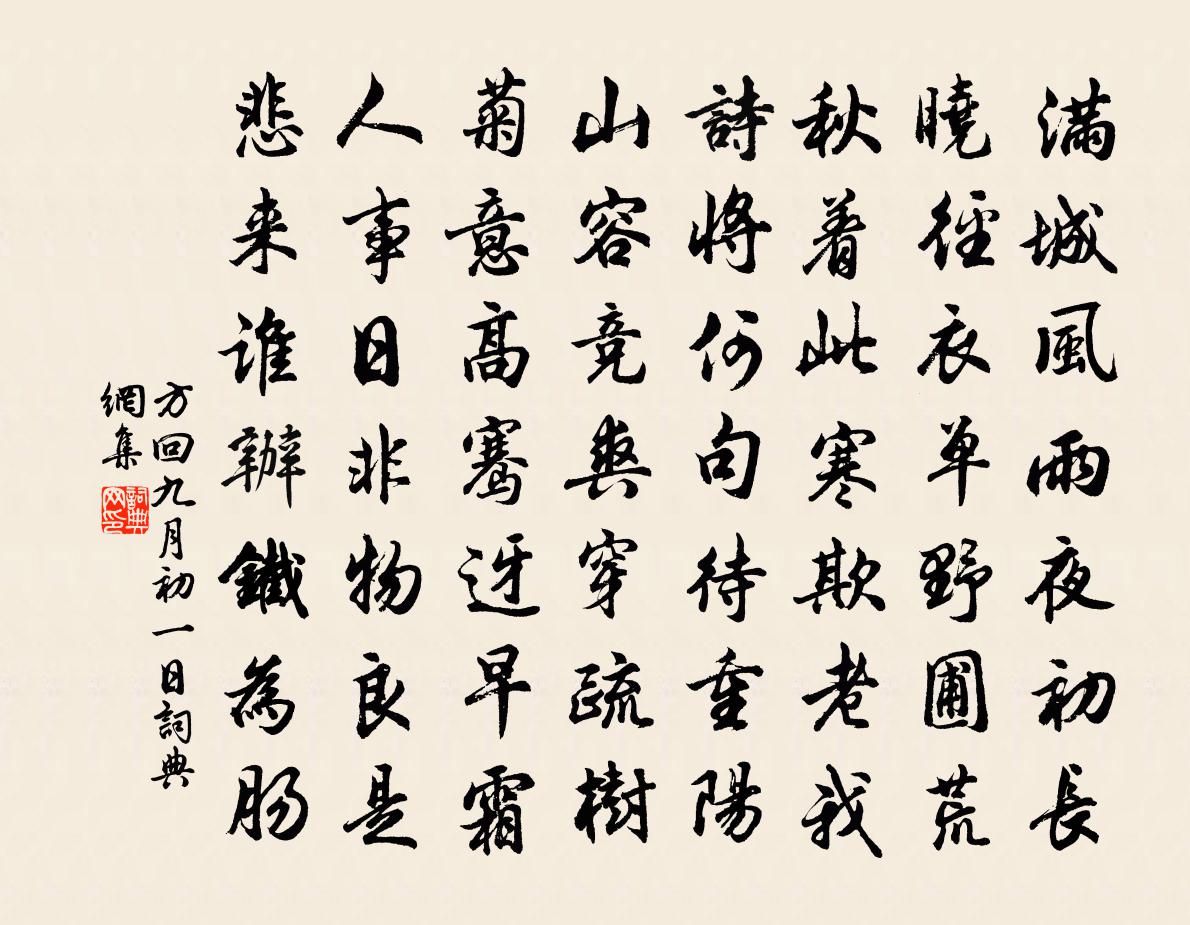 滿城風雨夜初長
曉徑衣单野圃荒
秋着此寒欺老我
詩將何句待重陽
山容竞爽穿疏樹
菊意高骞迓早霜
人事日非物良是
悲来谁辦鐵為肠
方回九月初一日詞典
網集
詞典
网印